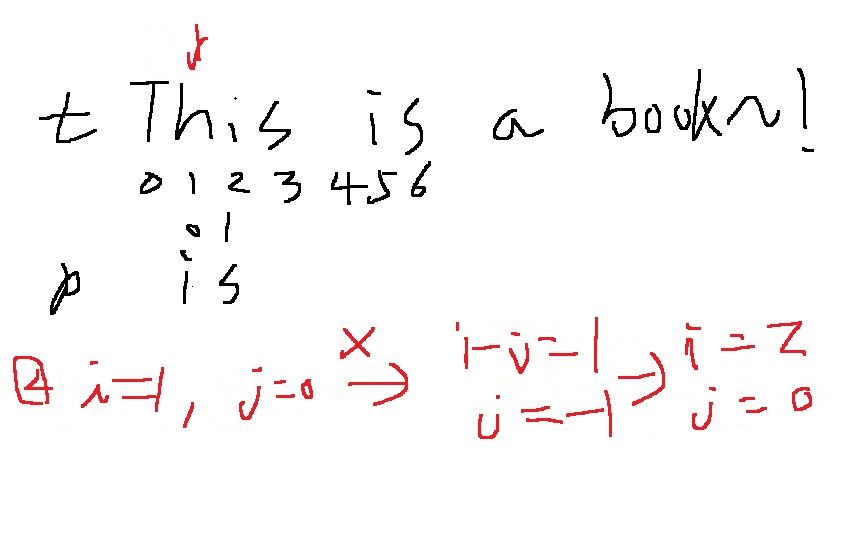 t This is a book~!
0 1 2 3 4 5 6
0 1
p is
② i=1, j=0 X → i-j=1 → i=2
j=-1 j=0